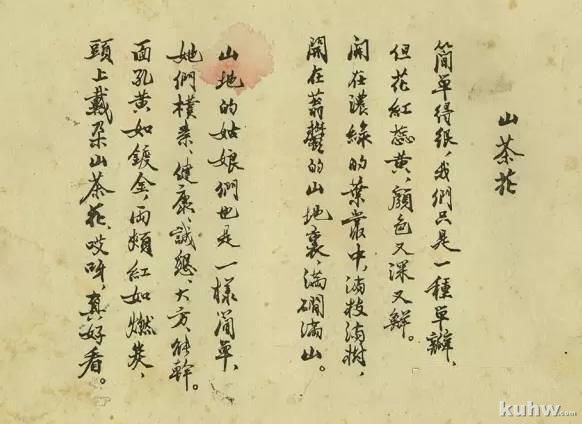 山茶花
簡單得很,我們只是一種單瓣、
但花紅蕊黃、顏色又深又鮮。
開在濃綠的葉叢中,滿枝滿樹、
開在蓊鬱的山地裏、滿磵滿山。
山地的姑娘們也是一樣簡單、
她們樸素、健康、誠懇、大方、能幹。
面孔黃如鍍金、兩頰紅如燃炎、
頭上戴朵山茶花、哎呀,真好看。
kuhw.com